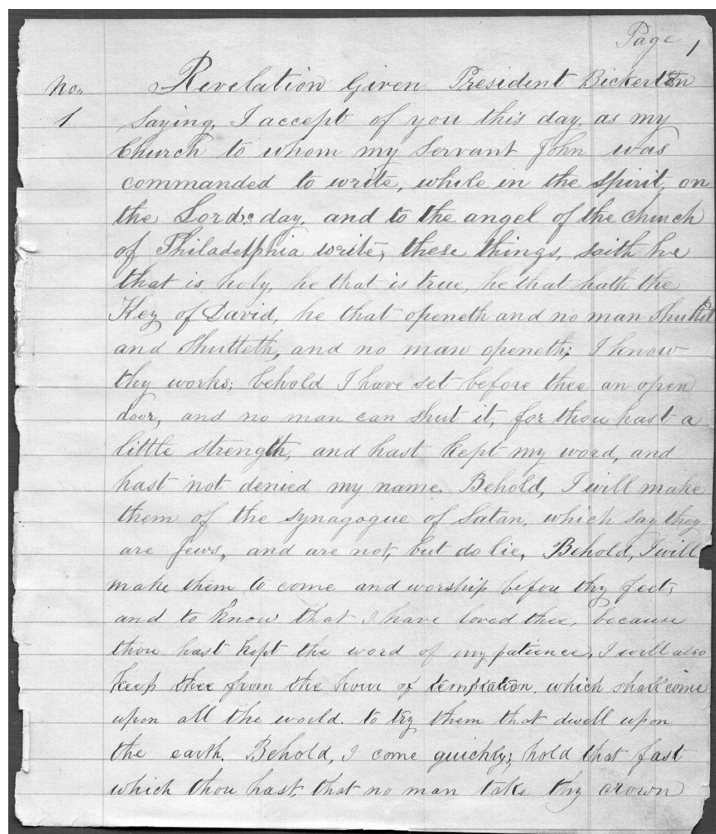 Page 1
No. Revelation Given President Bickerton
1 Saying, I accept of you this day, as my
Church to whom my Servant John was
commanded to write, while in the spirit, on
the Lord,s day, and to the angel of the church
of Philadelphia write; these things, saith he
that is holy, he that is true, he that hath the
Key of David, he that openeth and no man Shutteth
and Shutteth, and no man openeth; I know
thy works; behold I have set before thee an open
door, and no man can shut it, for thou hast a
little strength, and hast kept my word, and
hast not denied my name. Behold, I will make
them of the synagogue of Satan, which say they
are Jews, and are not, but do lie, Behold, I will
make them to come and worship before thy feet;
and to know that I have loved thee, because
thou hast kept the word of my patience, I will also
keep thee from the hour of temptation. which shall come
upon all the world. to try them that dwell upon
the earth. Behold, I come quickly; hold that fast
which thou hast, that no man take thy crown